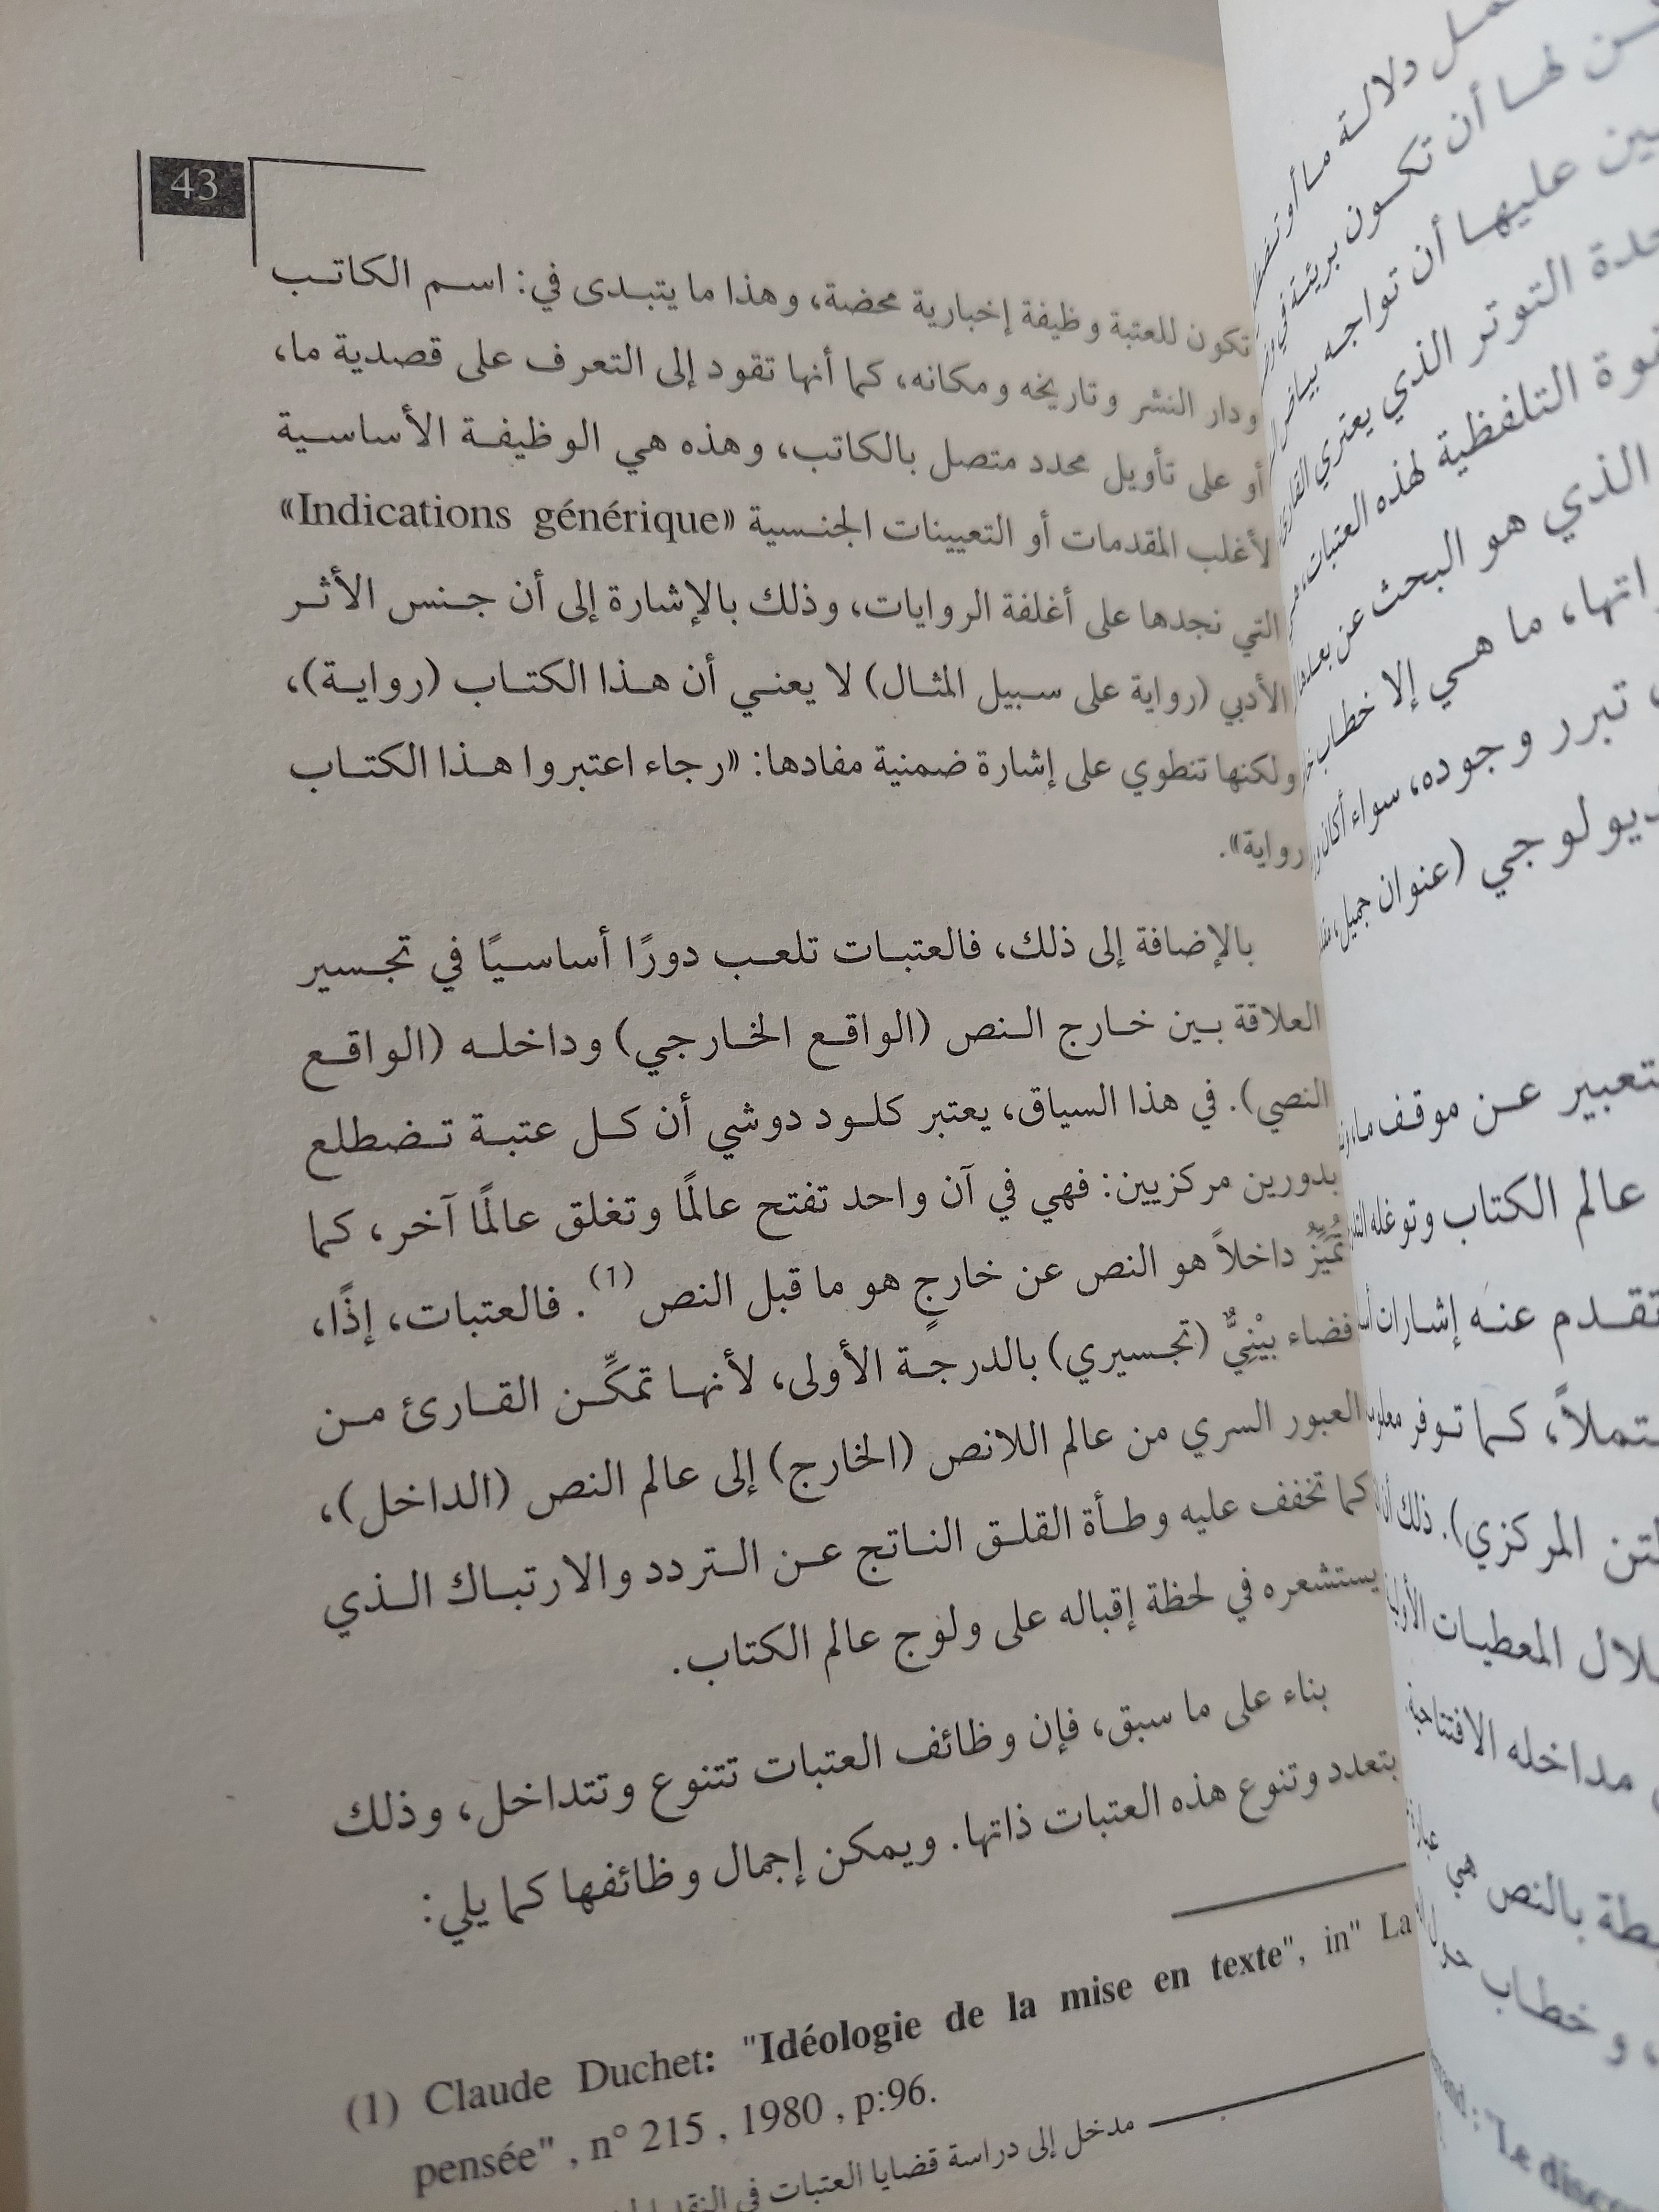 43
تكون للعتبة وظيفة إخبارية محضة، وهذا ما يتبدى في: اسم الكاتب
ودار النشر وتاريخه ومكانه، كما أنها تقود إلى التعرف على قصدية ما،
أو على تأويل محدد متصل بالكاتب، وهذه هي الوظيفة الأساسية
لأغلب المقدمات أو التعيينات الجنسية «Indications générique»
التي نجدها على أغلفة الروايات، وذلك بالإشارة إلى أن جنس الأثر
الأدبي (رواية على سبيل المثال) لا يعني أن هذا الكتاب (رواية)،
ولكنها تنطوي على إشارة ضمنية مفادها: «رجاء اعتبروا هذا الكتاب
رواية».
بالإضافة إلى ذلك، فالعتبات تلعب دورًا أساسيًا في تجسير
العلاقة بين خارج النص (الواقع الخارجي) وداخله (الواقع
النصي). في هذا السياق، يعتبر كلود دوشي أن كل عتبة تضطلع
بدورين مركزيين: فهي في آن واحد تفتح عالمًا وتغلق عالمًا آخر، كما
تُمَيِّزُ داخلاً هو النص عن خارجٍ هو ما قبل النص(1). فالعتبات، إذًا،
فضاء بيْنِيٌّ (تجسيري) بالدرجة الأولى، لأنها تمكِّن القارئ من
العبور السري من عالم اللانص (الخارج) إلى عالم النص (الداخل)،
كما تخفف عليه وطأة القلق الناتج عن التردد والارتباك الذي
يستشعره في لحظة إقباله على ولوج عالم الكتاب.
بناء على ما سبق، فإن وظائف العتبات تتنوع وتتداخل، وذلك
بتعدد وتنوع هذه العتبات ذاتها. ويمكن إجمال وظائفها كما يلي:
(1) Claude Duchet: "Idéologie de la mise en texte", in" La
pensée" , n° 215 , 1980 , p:96.
مدخل إلى دراسة قضايا العتبات في النقد
دلالة ما أو
لها أن تكون بريئة في
عليها أن تواجه بياض
التوتر الذي يعتري
التلفظية لهذه العتبات،
الذي هو البحث عن
ما هي إلا خطاب
تبرر وجوده، سواء أكان
(عنوان جميل،
عن موقف ما،
عالم الكتاب وتوغله
تقدم عنه إشارات
كما توفر
المركزي). ذلك أن
المعطيات
مداخله الافتتاحية
بالنص هي عبارة
و خطاب